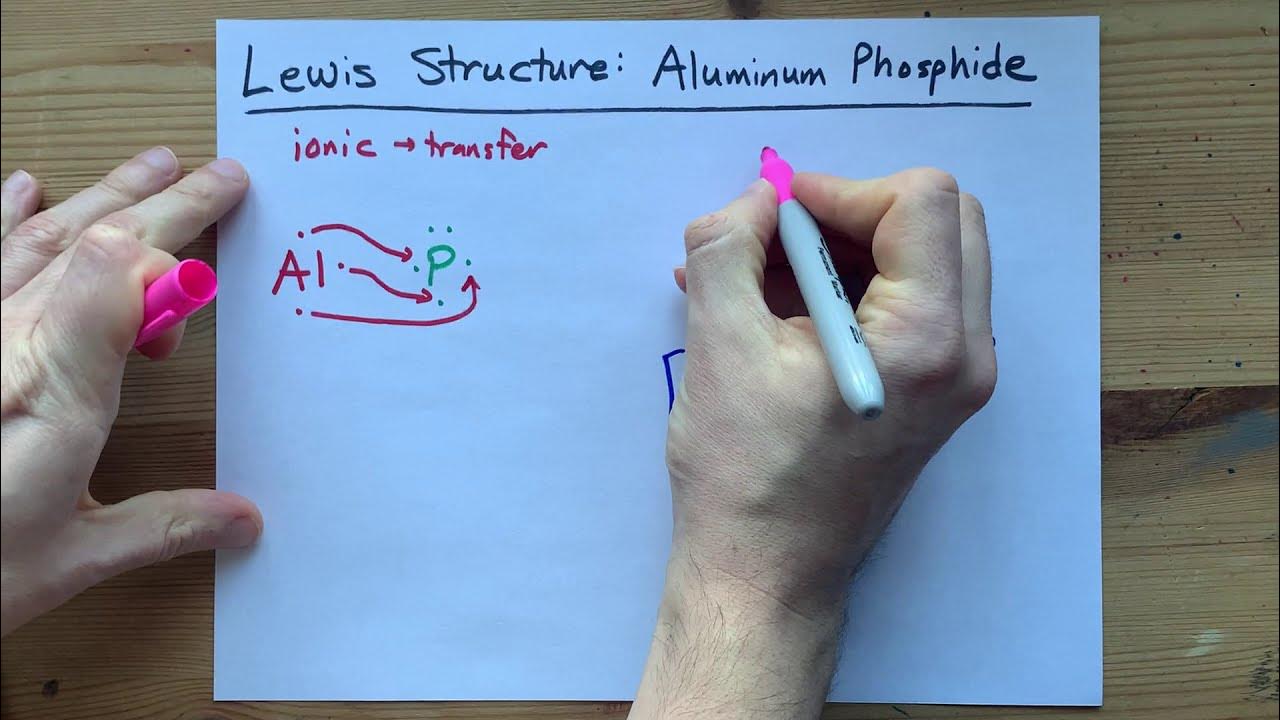 Lewis Structure: Aluminum Phosphide
ionic → transfer
Al P